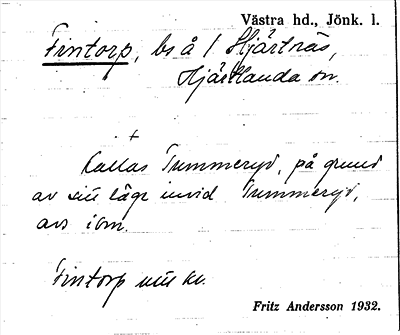 Västra hd., Jönk. l.
Fintorp, bs å / Hjärtnäs,
Hjärtlanda sn.
+
Kallas Trummeryd, på grund
av sitt läge invid Trummeryd,
avs i sn.
Fintorp
Fritz Andersson 1932.